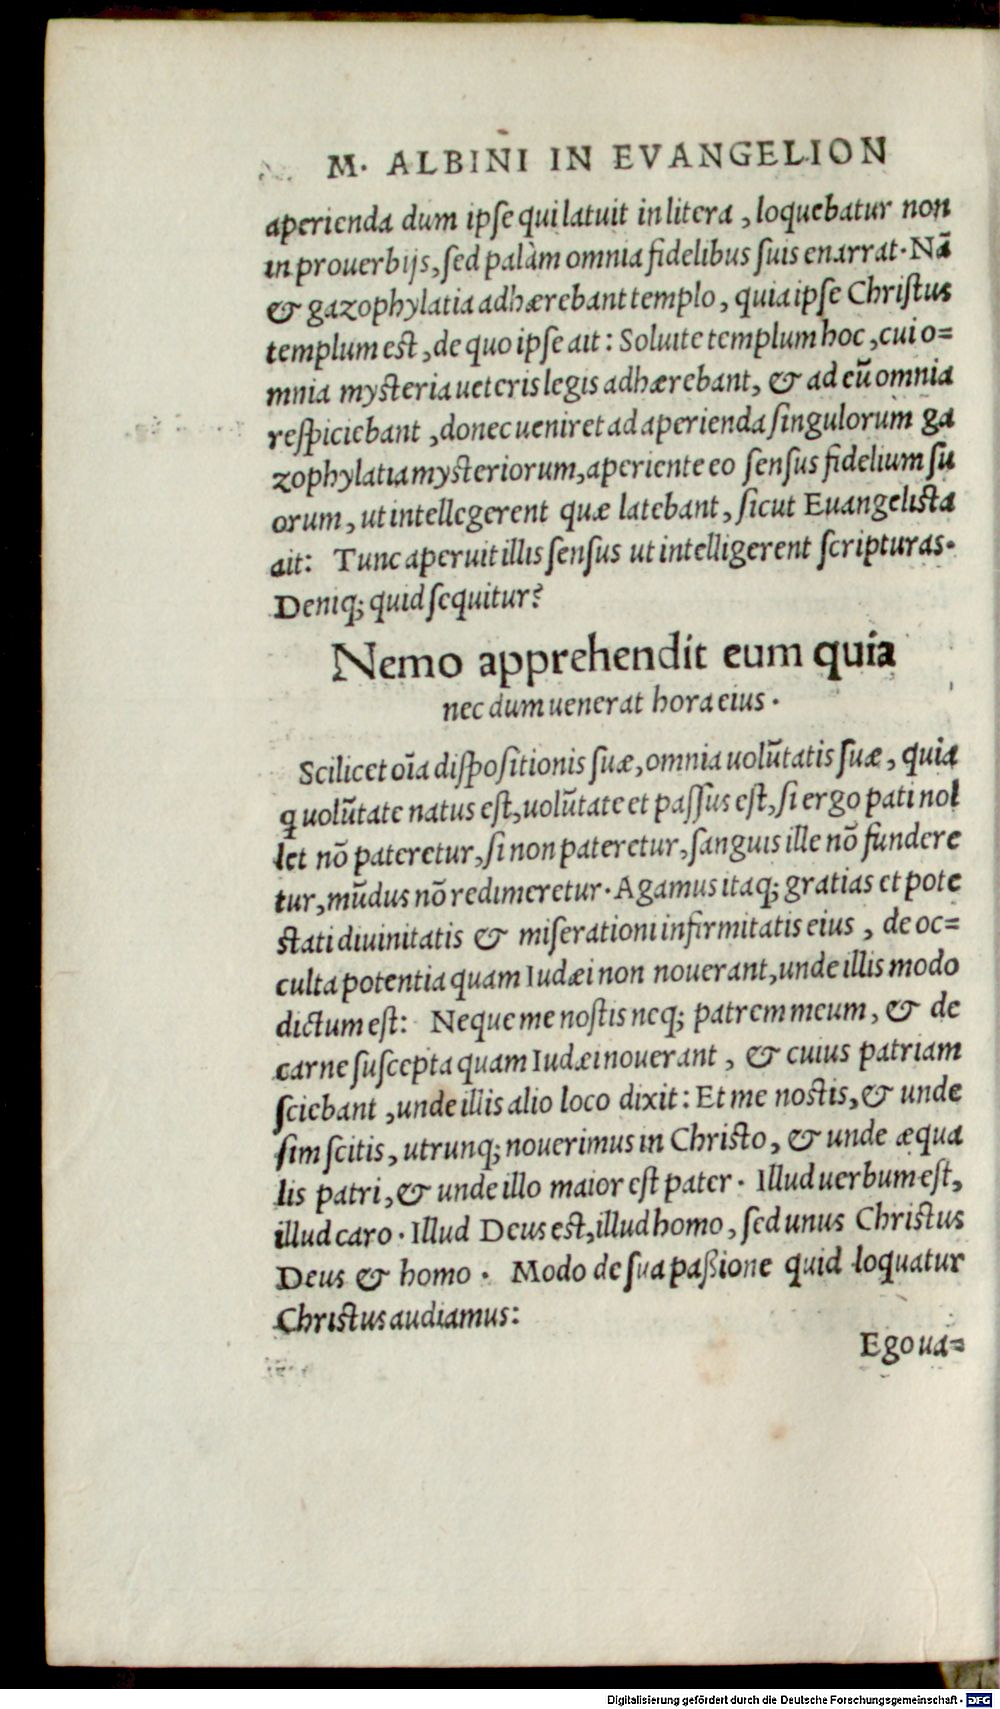 M. ALBINI IN EVANGELION
aperienda dum ipſe qui latuit in litera, loquebatur non
in prouerbijs, ſed palàm omnia fidelibus ſuis enarrat. Nã
& gazophylatia adhærebant templo, quia ipſe Chriſtus
templum eſt, de quo ipſe ait: Soluite templum hoc, cui o=
mnia myſteria ueteris legis adhærebant, & ad eũ omnia
reſpiciebant, donec ueniret ad aperienda ſingulorum ga
zophylatia myſteriorum, aperiente eo ſenſus fidelium ſu
orum, ut intellegerent quæ latebant, ſicut Euangeliſta
ait: Tunc aperuit illis ſenſus ut intelligerent ſcripturas.
Deniq; quid ſequitur?
Nemo apprehendit eum quia
nec dum uenerat hora eius.
Scilicet oĩa diſpoſitionis ſuæ, omnia uolũtatis ſuæ, quia
q uolũtate natus eſt, uolũtate et paſſus eſt, ſi ergo pati nol
let nõ pateretur, ſi non pateretur, ſanguis ille nõ fundere
tur, mũdus nõ redimeretur. Agamus itaq; gratias et pote
ſtati diuinitatis & miſerationi infirmitatis eius, de oc=
culta potentia quam Iudæi non nouerant, unde illis modo
dictum eſt: Neque me noſtis neq; patrem meum, & de
carne ſuſcepta quam Iudæi nouerant, & cuius patriam
ſciebant, unde illis alio loco dixit: Et me noſtis, & unde
ſim ſcitis, utrunq; nouerimus in Chriſto, & unde æqua
lis patri, & unde illo maior eſt pater. Illud uerbum eſt,
illud caro. Illud Deus eſt, illud homo, ſed unus Chriſtus
Deus & homo. Modo de ſua paßione quid loquatur
Chriſtus audiamus:
Ego ua=
Digitalisierung gefördert durch die Deutsche Forschungsgemeinschaft - DFG